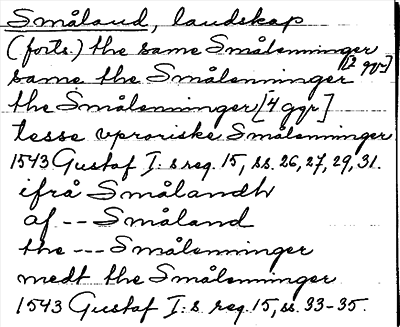 Småland, landskap
(forts.) the same Smålenninger
same the Smålenninger [2 ggr]
the Smålenninger [4 ggr]
tesse vproriske Smålenninger
1543 Gustaf I:s reg. 15, ss. 26, 27, 29, 31.
ifrå Smålandh
af -- Småland
the --- Smålenninger
medt the Smålenninger
1543 Gustaf I:s reg. 15, ss. 33-35.